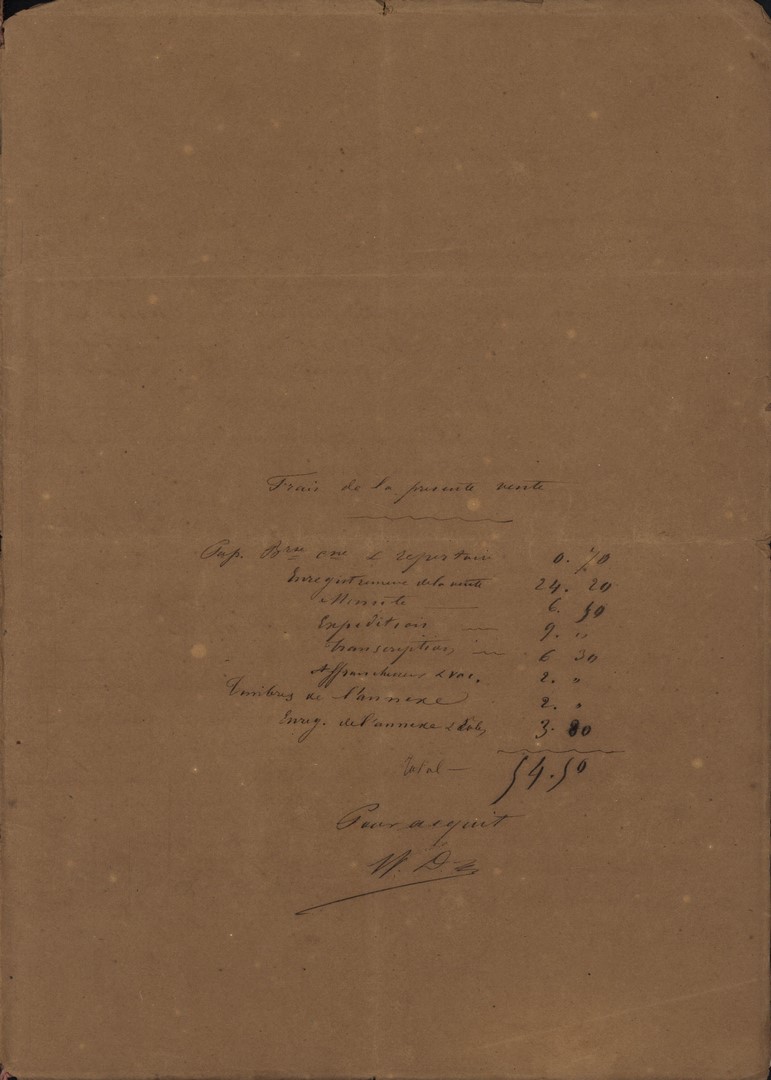 Frais de la presente vente
Pap. & repertoire 0. 70
Enregistrement de la vente 24. 20
Minute 6. 50
Expédition — 9. "
transcription — 6 30
Affranchissem & vac. 2. "
Timbres de l'annexe 2. "
Enreg. de l'annexe & 3. 80
Total — 54.50
Pour acquit